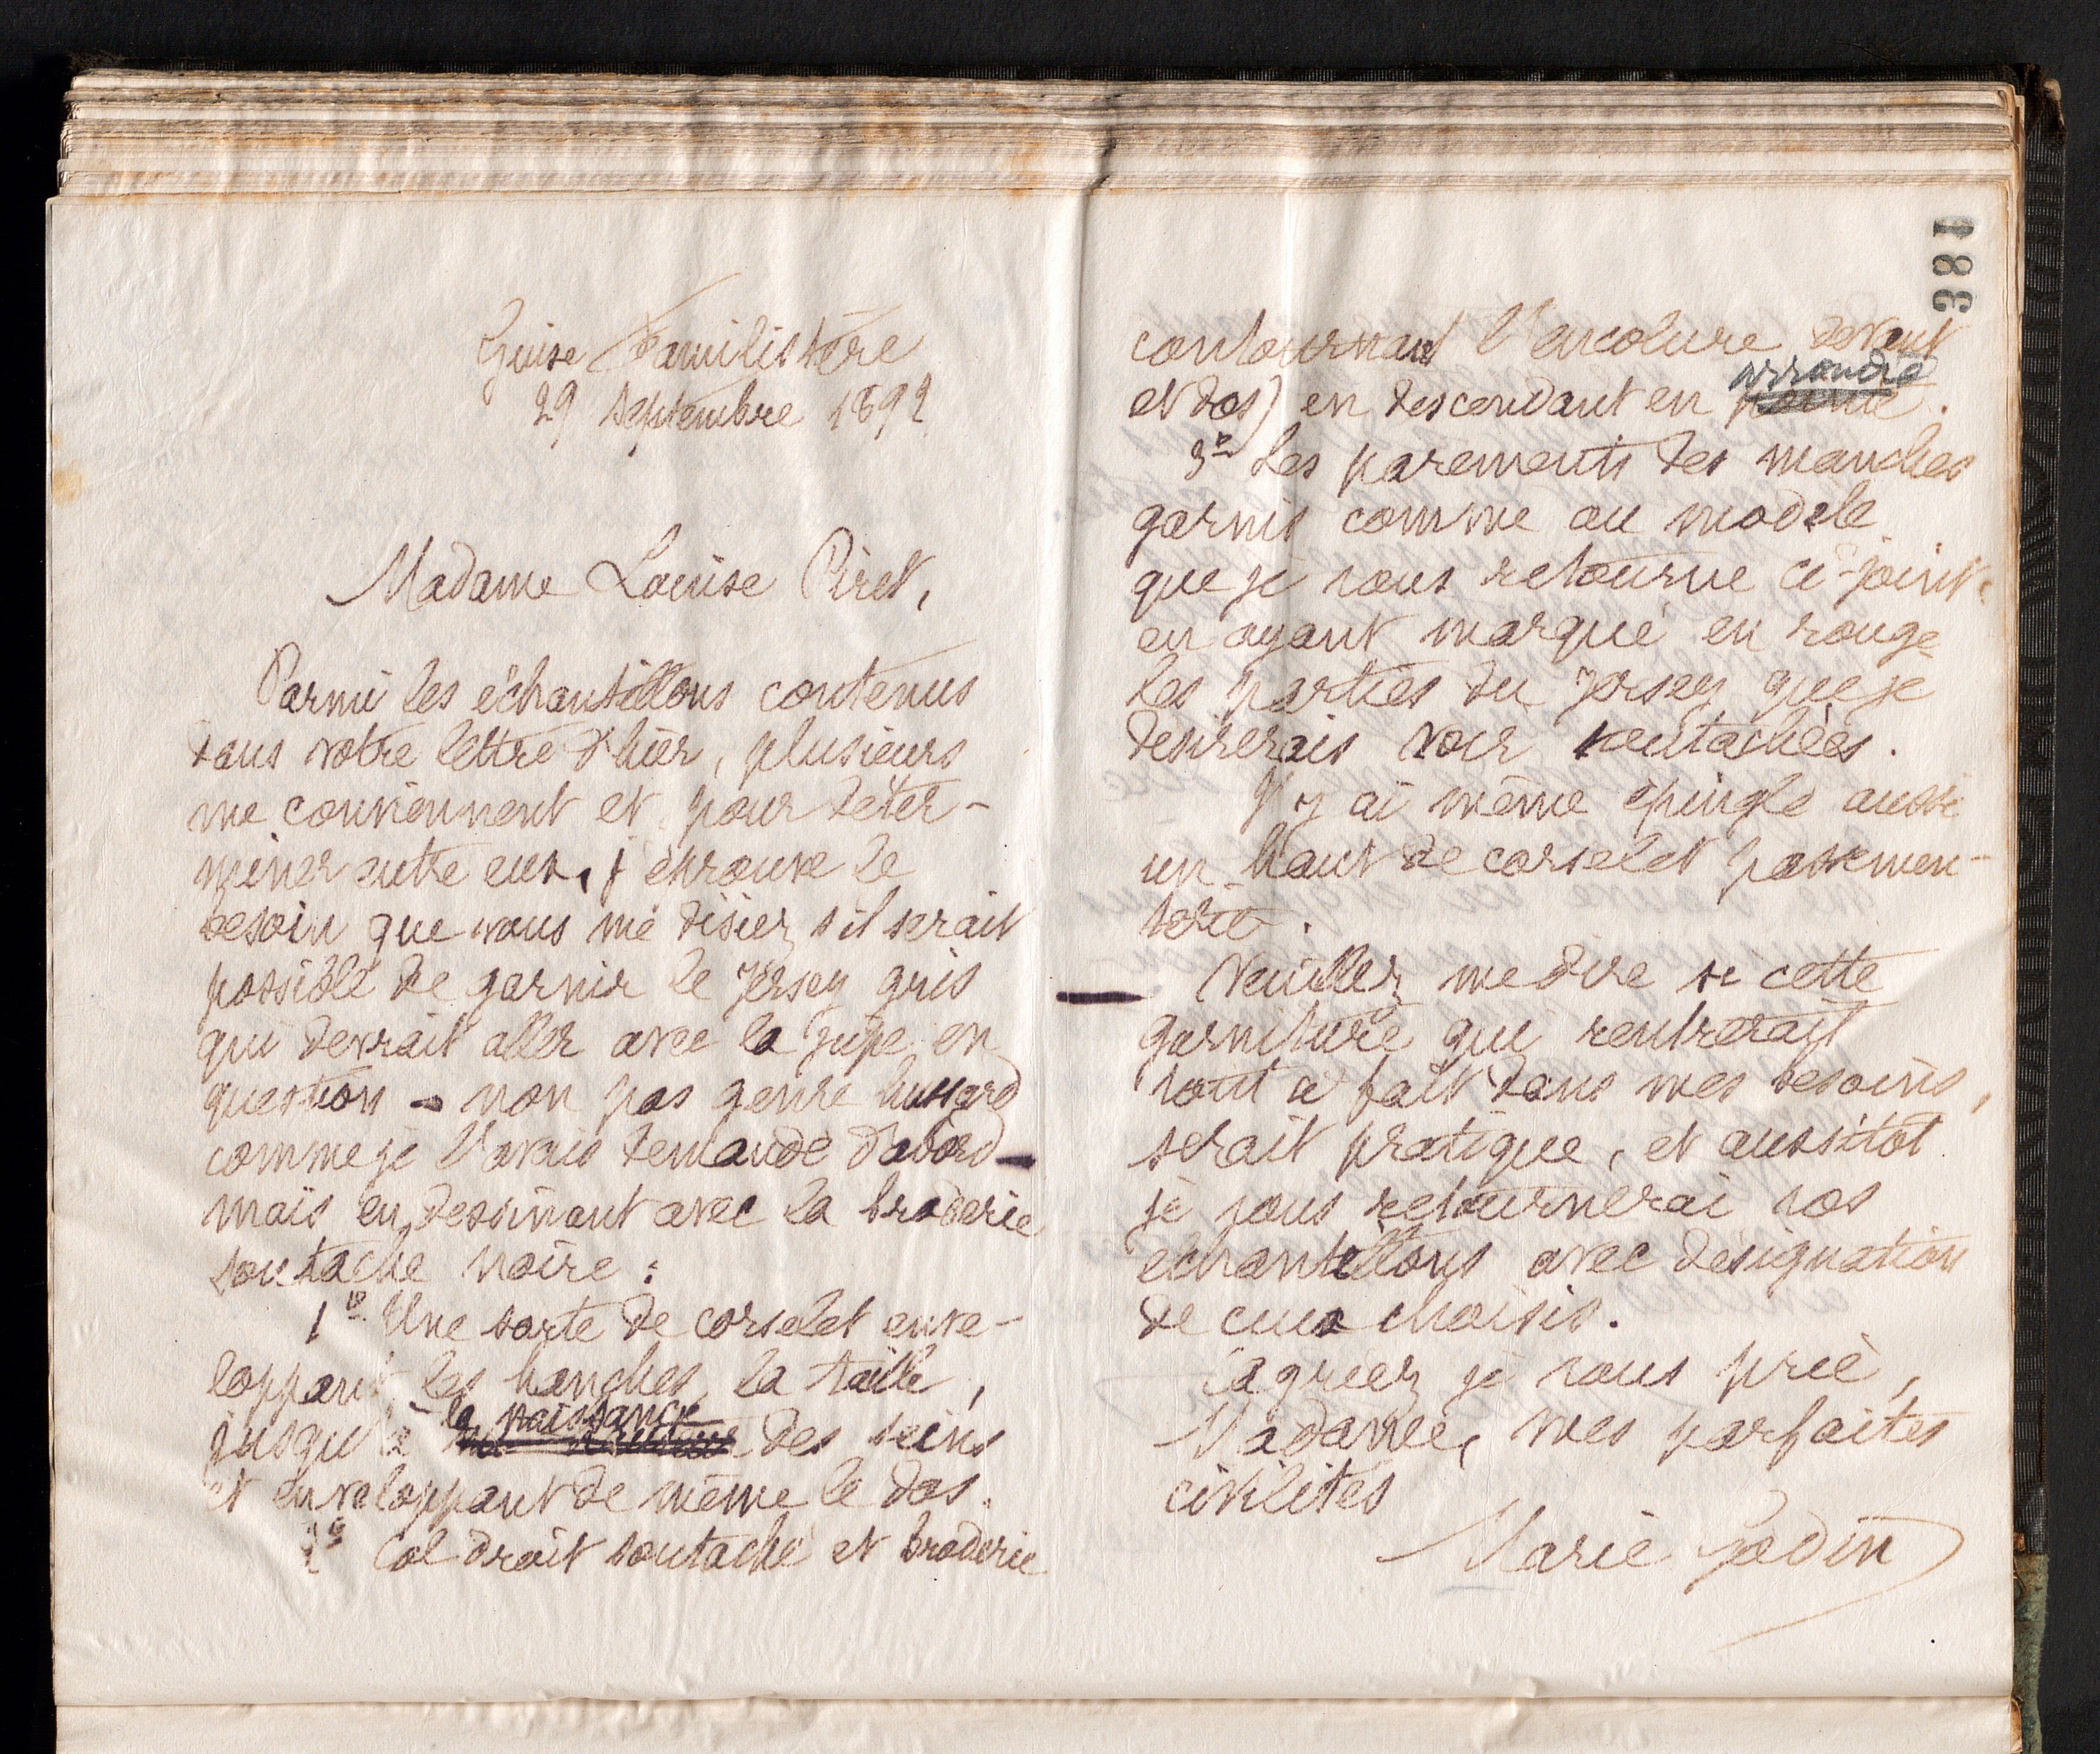 Guise Familistère
29 septembre 1892
Madame Louise Piret,
Parmi les échantillons contenus
dans votre lettre d'hier, plusieurs
me conviennent et pour déter-
miner entre eux, j'éprouve le
besoin que vous me disiez s'il serait
possible de garnir le jersey gris
qui devrait aller avec la jupe en
question - non pas genre hussard
comme je l'avais demandé d'abord -
mais en dessinant avec la broderie
soutache noire :
1º Une sorte de corselet enve-
loppant les hanches, la taille,
la naissance
jusqu'à des seins
et enveloppant de même le dos.
2º Col droit soutaché et broderie
381
contournant l'encolure devant
arrondie
et dos) en descendant en pointe.
3º Les parements des manches
garnis comme au modèle
que je vous retourne ci-joint
en ayant marqué en rouge
les parties du jersey que je
désirerais voir soutachées.
J'y ai même épinglé aussi
un haut de corselet passemen-
terie.
Veuillez me dire si cette
garniture qui rentrerait
tout à fait dans mes besoins,
serait pratique, et aussitôt
je vous retournerai vos
échantillons avec désignation
de ceux choisis.
Agréez je vous prie,
Madame, mes parfaites
civilités
Marie Godin